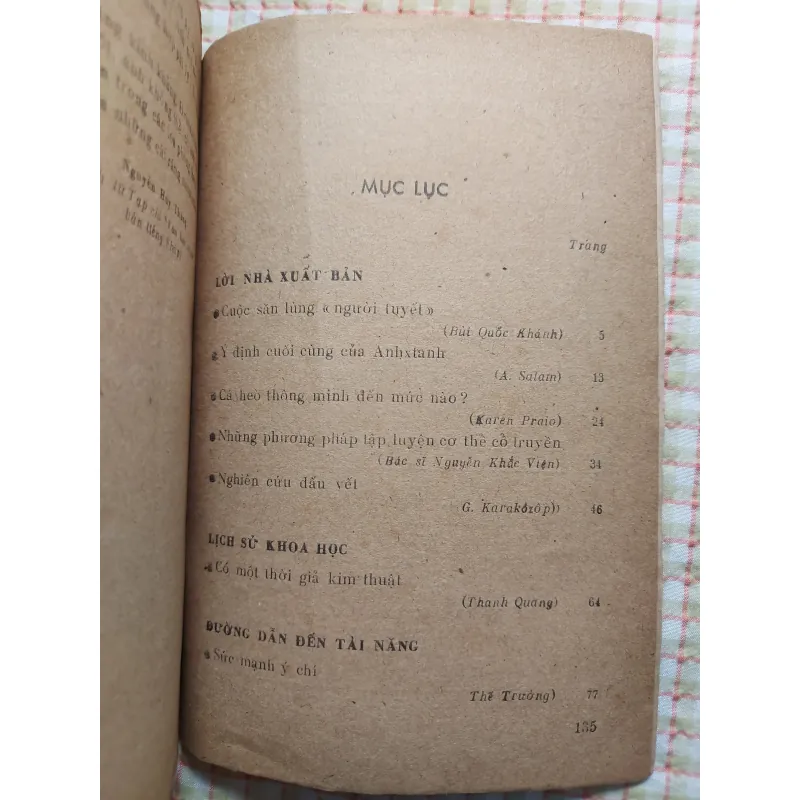 trong các
những
Nguyễn Huy
MỤC LỤC
Trang
LỜI NHÀ XUẤT BẢN
Cuộc săn lùng « người tuyết»
(Bùi Quốc Khánh) 5
Ý định cuối cùng của Anhxtanh
(A. Salam) 13
Cá heo thông minh đến mức nào?
(Karen Praio) 24
Những phương pháp tập luyện cơ thể cổ truyền
(Bác sĩ Nguyễn Khắc Viện) 34
Nghiên cứu dấu vết
G. Karakôrôp) 46
LỊCH SỬ KHOA HỌC
Có một thời giả kim thuật
(Thanh Quang) 64
ĐƯỜNG DẪN ĐẾN TÀI NĂNG
Sức mạnh ý chí
Thế Trường) 77
135